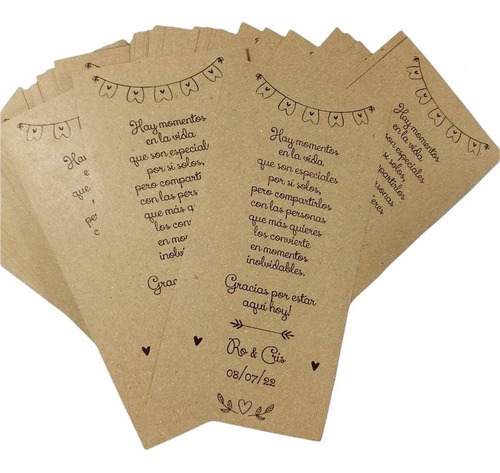 Hay momentos
en la vida
que son especiales
por si solos,
pero compartirlos
con las personas
que más quieres
los convierte
en momentos
inolvidables.
Gracias por estar
aquí hoy!
Ro & Cris
08/07/22
Hay momentos
en la vida
que son especiales
por si solos,
pero compartir
con las pers
que más q
los conv
en mo
inolvi
Grac
Hay momentos
en la vida
son especiales
si solos,
compartirlos
personas
quieres
Ha